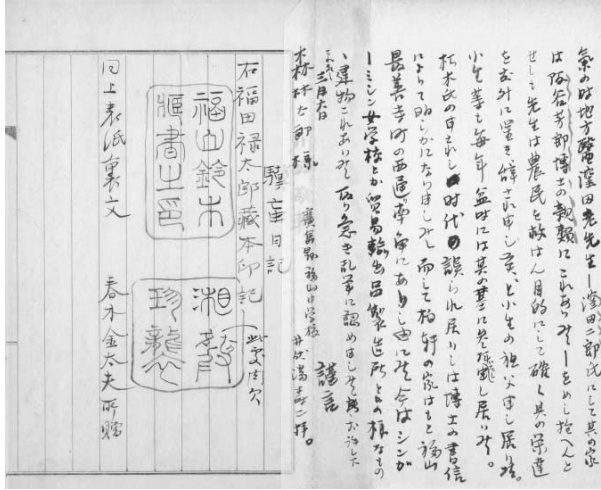 氣の時地方醫窪田老先生—窪田二郎氏にして其の家
は阪谷芳郎博士の親類にこれあり候—をめし抱へんと
せしも先生は農民を救はん目的にして確く其の榮達
を外に置き辭され申し と小生の祖父申し居り候。
小生等も毎年盆時には其の墓に参 し居り候。
松木氏の申されし時代の誤られ居りしは博士の書信
によりて明らかになり申し候 而して柏軒の家はもと福山
最善寺町の西通南角にありし由に候 今はシンガ
ーミシン女学校とか貿易輸出品製造所との様なもの
、建物これあり候 取り急ぎ乱筆に認め申し候 お許し下
謹言
三月六日
廣島縣福山中学校 井伏満寿二拝。
森林太郎様
日記
右福田禄太郎藏本印記
福山鈴木
書之印
湘
珍
同上表紙裏文 春木金太夫所贈